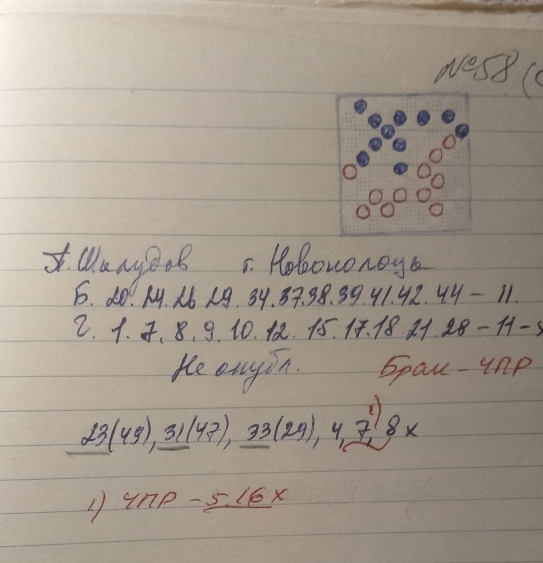 №58 (
П. Шклудов г. Новополоцк
Б. 20. 24. 26. 29. 34. 37. 38. 39. 41. 42. 44 - 11.
Ч. 1. 7. 8. 9. 10. 12. 15. 17. 18. 21. 28 - 11 -
Не опубл. Брак - ЧПР
23(49), 31(47), 33(29), 4, 7, 8 x
1)
1) ЧПР - 5. 16 x